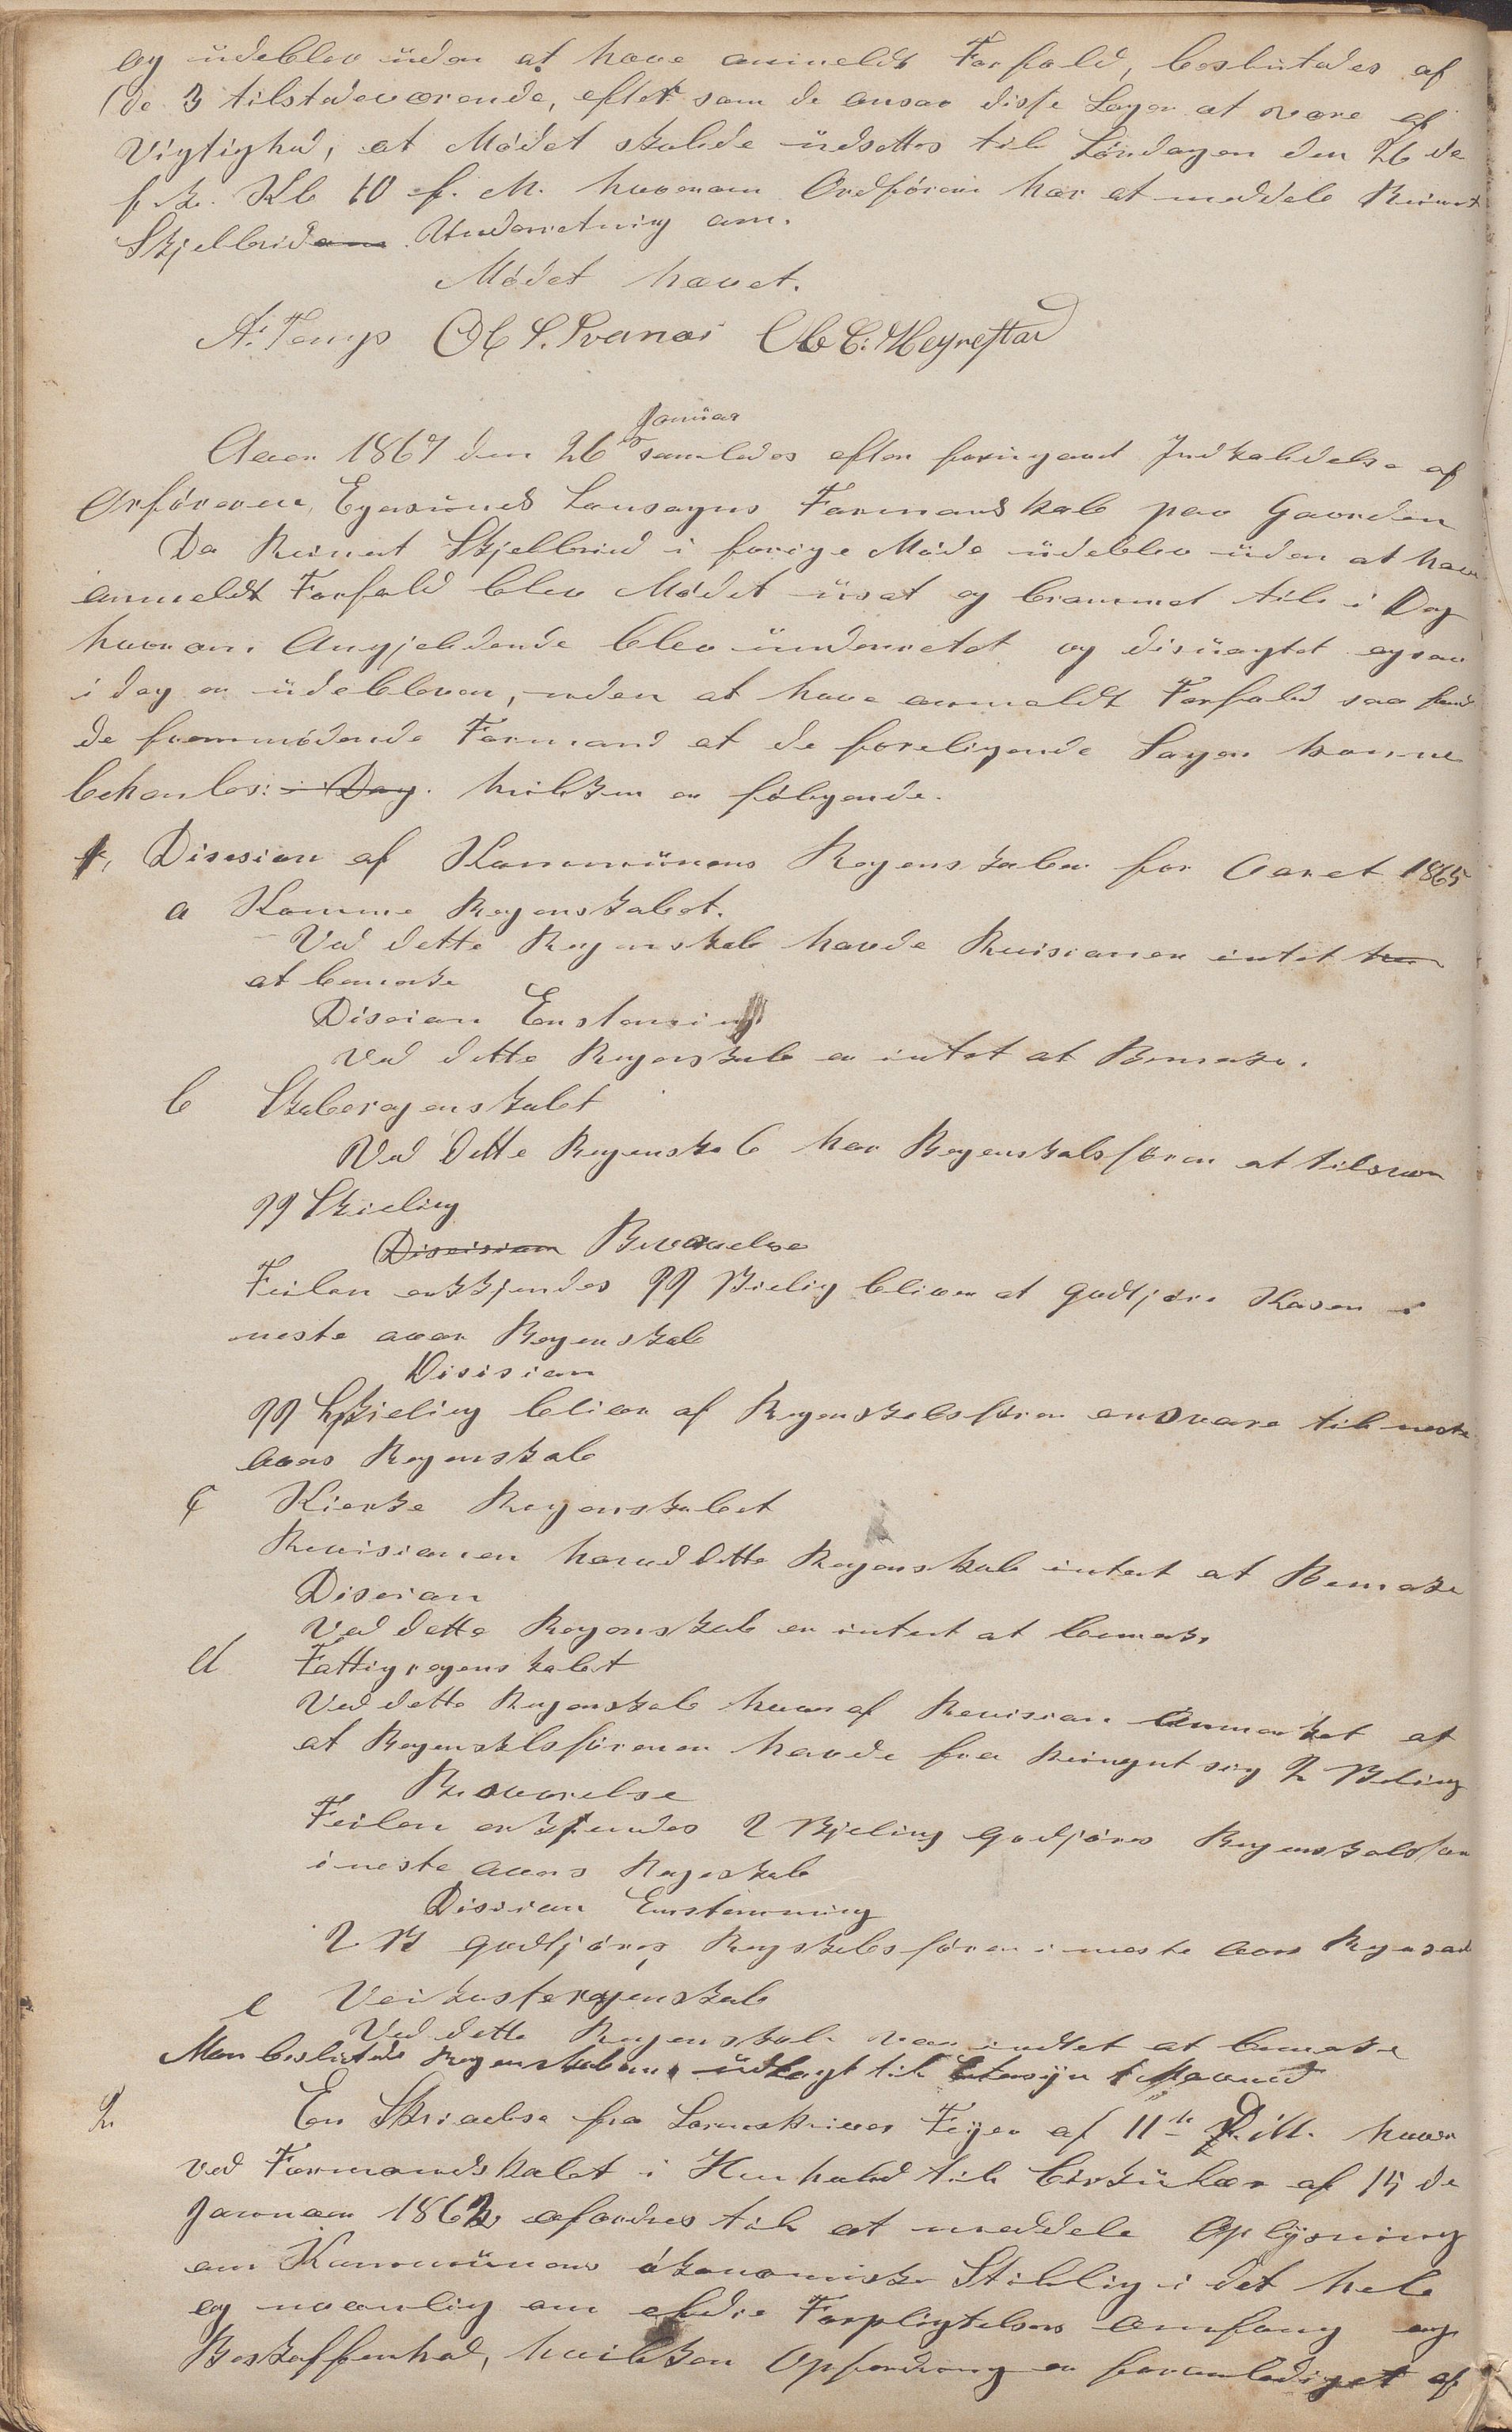 og üdeblev üden at have anmeldt Forfald, beslütades af
de 3 tilstedeværende, efter som de ansaa disse Sager at være af
Vigtighed, at Mødet skulde üdsettes til Løndagen den 26 de
f. k. Kl 10 f. M. hvorom Ordføren har at meddele Reinert
Skjelbrid Underretning om.
Mødet hævet.
A. Tengs Ole S. Svanæs Ole C. Høyrestad
Aaar 1867 den 26 Janüar samledes efter foringaaet Indkaldelse af
Orføreren, Egersünds Lansogns Formandskab paa Gaarden
Da Reinert Skjelbrid i forige Møde üdeblev üden at have
anmeldt Forfald blev Mødet üsat og berammet til i Dag
hvorom Angjeldende blev ünderrettet og disüagtet ogsaa
i dag er üdebleven, uden at have anmeldt Forfald saa fand
de fremmødende Formand at de foreligende Sager kunne
behanles: i Dag. hvilken er følgende.
1, Disesion af Kommünens Regenskaber for Aaret 1865
a Komme Regenskabet.
Ved dette Regenskab havde Revisionen intet
at bemerke
Disoion Enstemming
Ved dette Regenskab er intet at Bemerke.
b Skoleregenskabet
Ved dette Regenskab har Regenskabsføren at tilsvare
99 Skieling
Discision Besvarelse
Feilen erkjendes 99 Skielig bliver at godtjøre Kasen i
neste aaar Regenskab
Disision
99 Skieling bliver af Regenskabsføren ansvare til neste
Aaars Regenskab
c Kierke Regenskabet
Revisionen haved dette Regenskab intet at Bemerke
Disoion
Ved dette Regenskab er intet at bemerke
d Fattigregenskabet
Ved dette Regenskab hvar af Revision anmerket at
at Regenskabsføreren havde fra Reingnt sig 2 Skeling
Besvarelse
Feilen erkjendes 2 Skjeling Godjøres Regenskabsføren
i neste Aaars Regeskab
Disision Enstemming
2 Sk godtjøres Regskabsføren i neste Aars
e Veikasseregenskab
Ved dette Regenskab var indtet at bemerke
Man beslütede Regenskaberne üdlagt til Etersyn i Maaned
2. En Skrivelse fra Sorenskriver Feyer af 11te D. M. hvor
ved Formandskabet i Henhold til Cirkülær af 15 de
Januar 1862 afordres til at meddele Oplysning
om Kommünens økonomiske Stillig i det hele
og navnlig om Forpligtelsers Omfang og
Beskaffenhed, hvilken Opfordring er foranlediget af